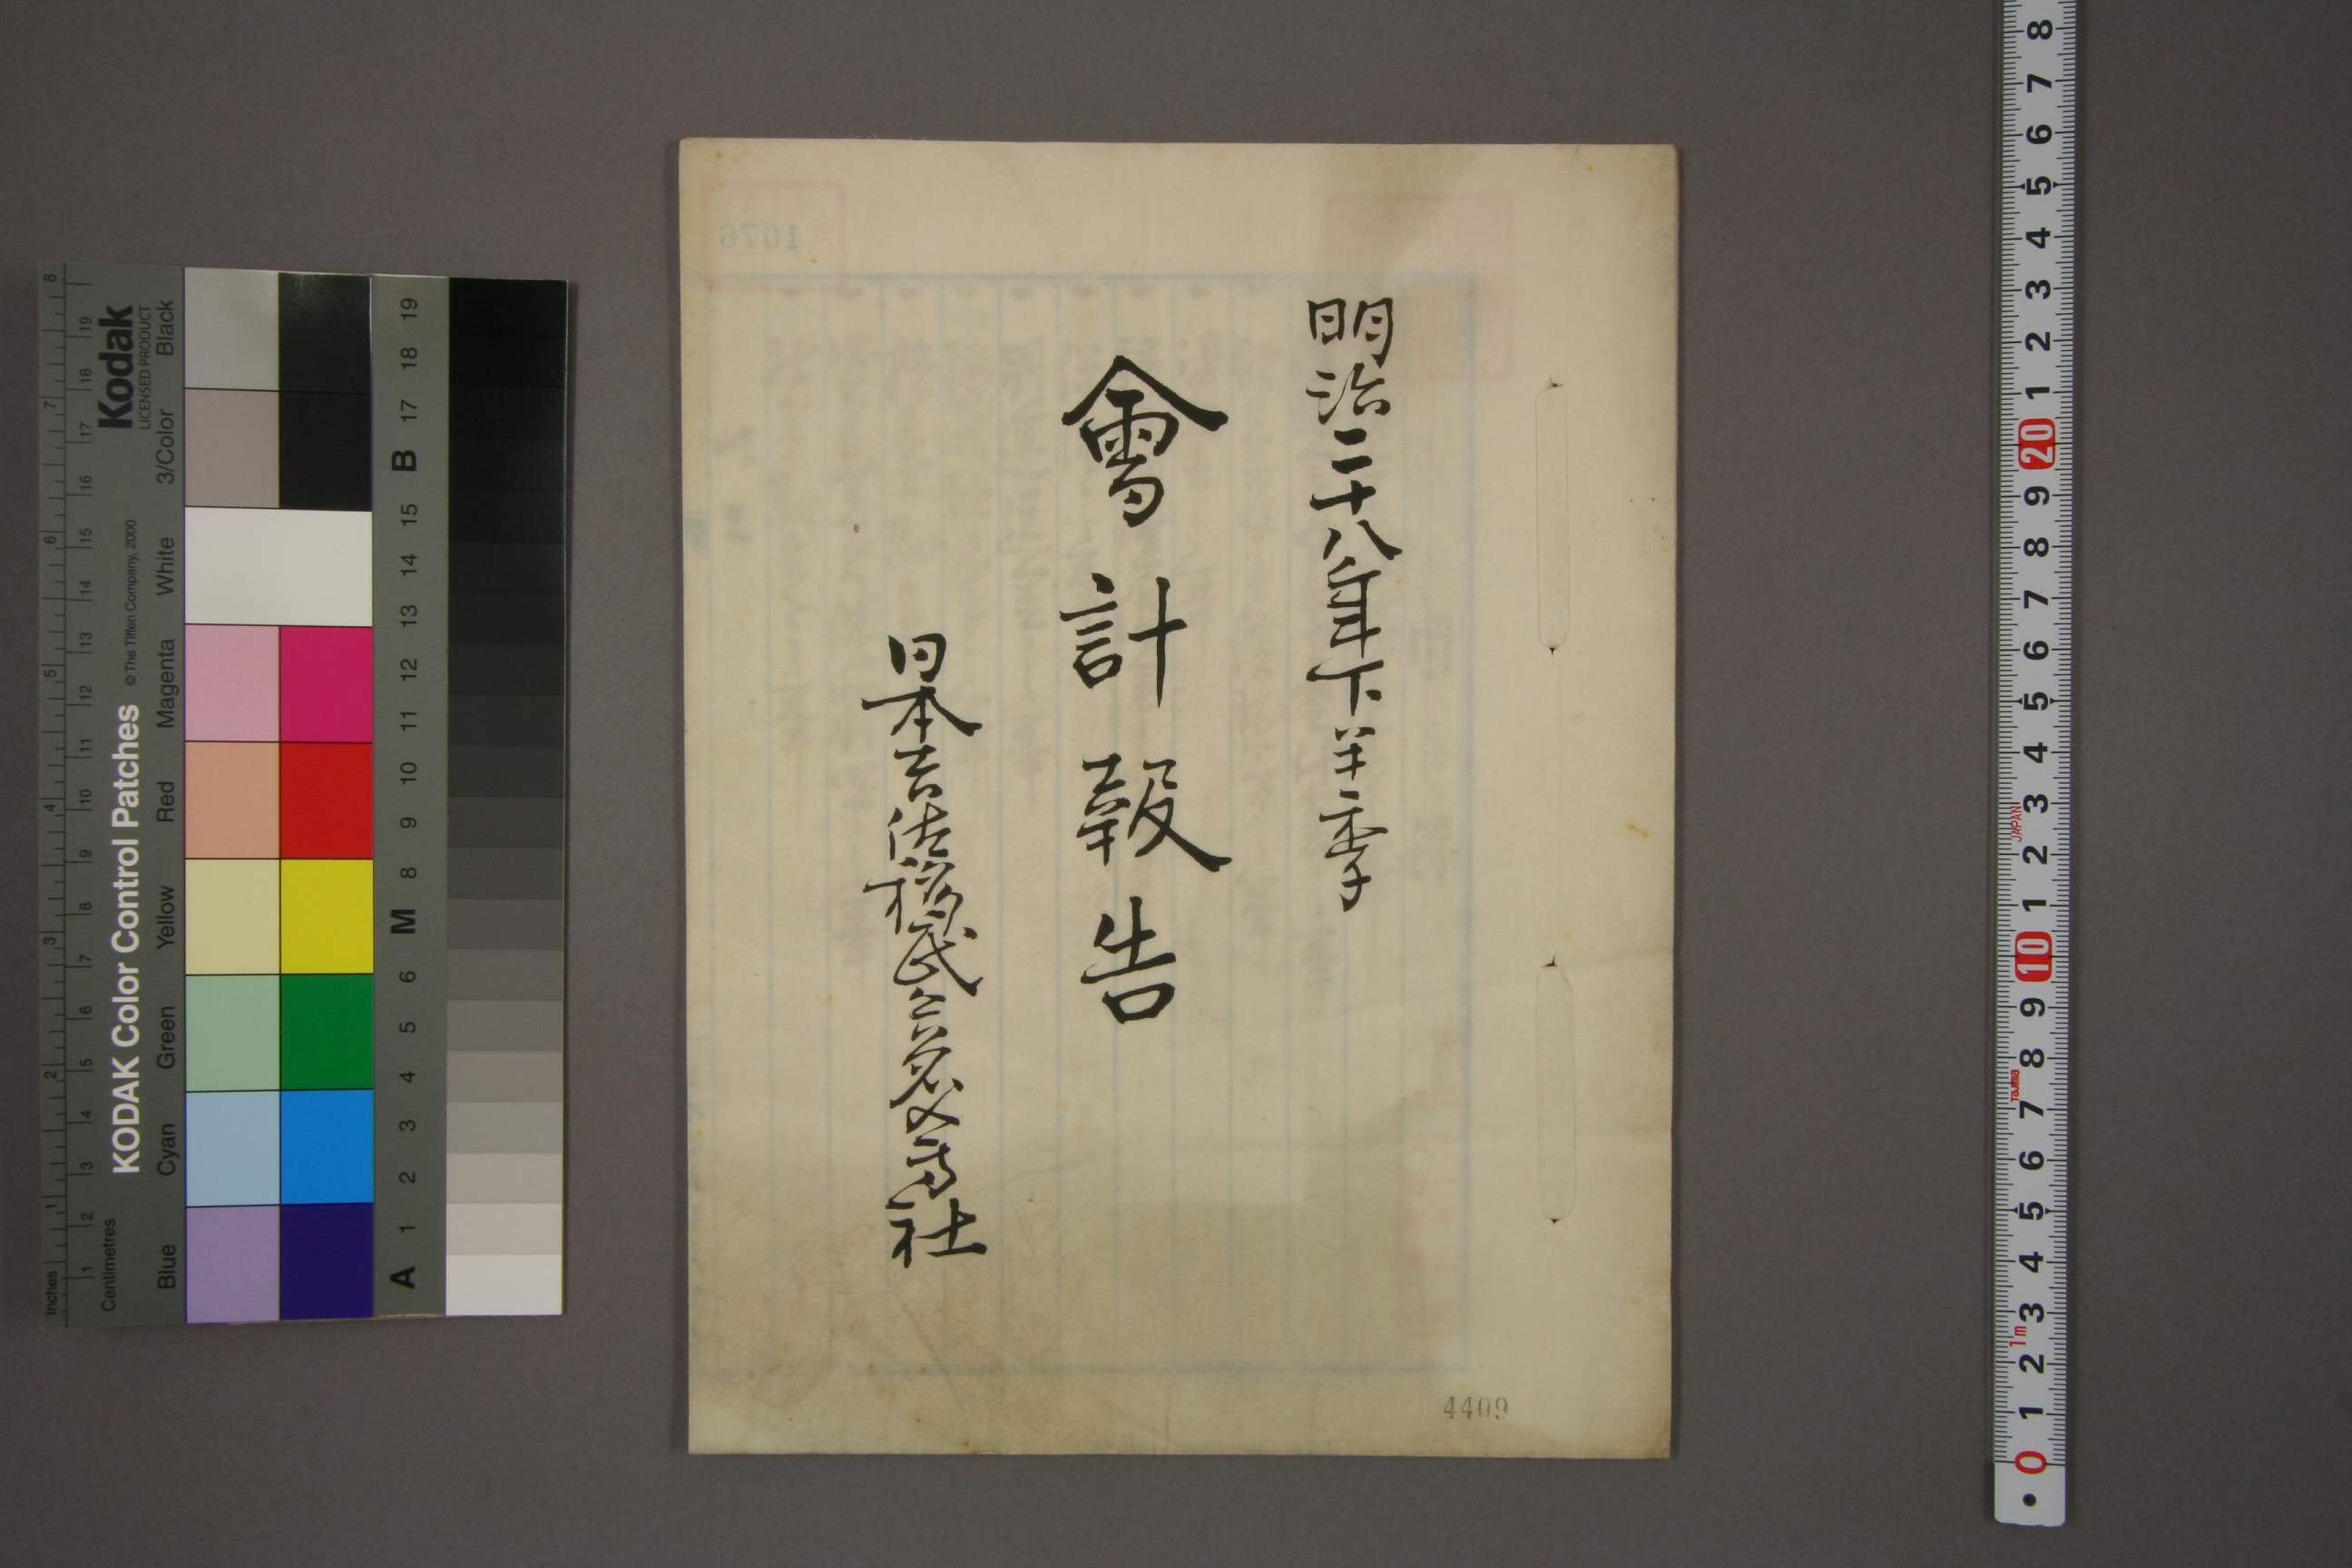 明治二十八年下半季
會計報告
日本吉佐移民合名會社
4409
1076
KODAK Color Control Patches
© The Tiffen Company, 2000
Kodak
LICENSED PRODUCT
Inches 1 2 3 4 5 6 7 8
Centimetres 1 2 3 4 5 6 7 8 9 10 11 12 13 14 15 16 17 18 19
Blue Cyan Green Yellow Red Magenta White 3/Color Black
A 1 2 3 4 5 6 M 8 9 10 11 12 13 14 15 B 17 18 19
0 1 2 3 4 5 6 7 8 9 10 1 2 3 4 5 6 7 8 9 20 1 2 3 4 5 6 7 8
1m
Tajima
JAPAN